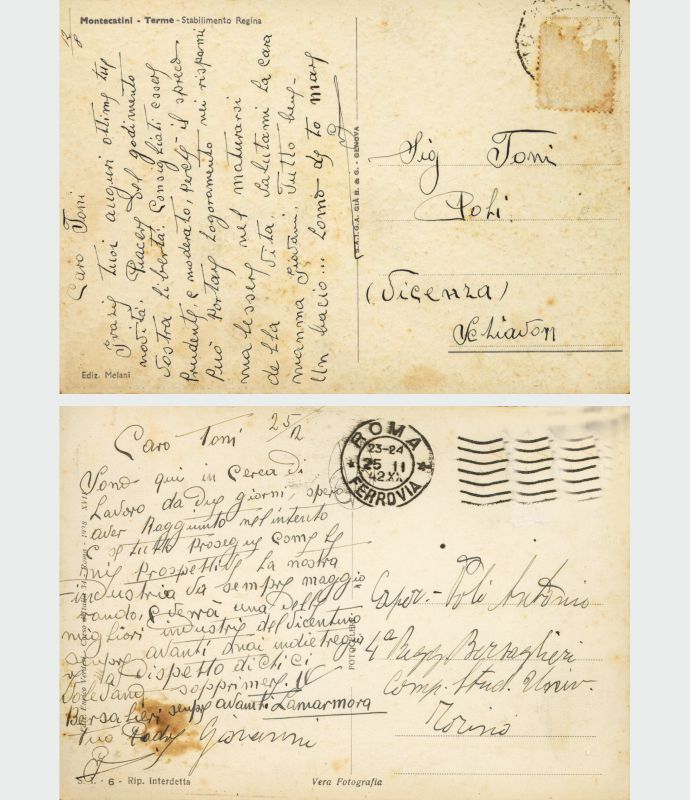 Montecatini - Terme - Stabilimento Regina
Caro Toni
Grazie tuoi auguri ottime tue
novità. Piacere del godimento
vostra libertà. Consigliati essere
Prudente, e moderato, perche il spreco
Può Portare Logoramento nei risparmi
malessere nel maturarsi
della vita. Salutami la cara
mamma Giovanni. Tutto bene
Un bacio...
Ediz. Melani
S.A.I.G.A. GIÀ B. & G. - GENOVA
Sig Toni
Poli
(Vicenza)
Schiavon
25/2
Caro Toni
Sono qui in cerca di
Lavoro da due giorni, spero
aver Raggiunto nel intento
e se tutto Prosegue Come le
mie Prospettive La nostra
industria va sempre maggio
rando, e verrà una delle
migliori industrie del Vicentino
sempre avanti e mai indietreggio
a dispetto di chi ci
volevano sopprimere. IV
Bersaglieri sempre avanti Lamarmora
Tuo Padre Giovanni
ROMA
23-24
25 II
42.XX
FERROVIA
Caper. - Poli Antonio
4ª Regg. Bersaglieri
Comp. Stud. Univ.
Torino
S. I. - 6 - Rip. Interdetta
Vera Fotografia